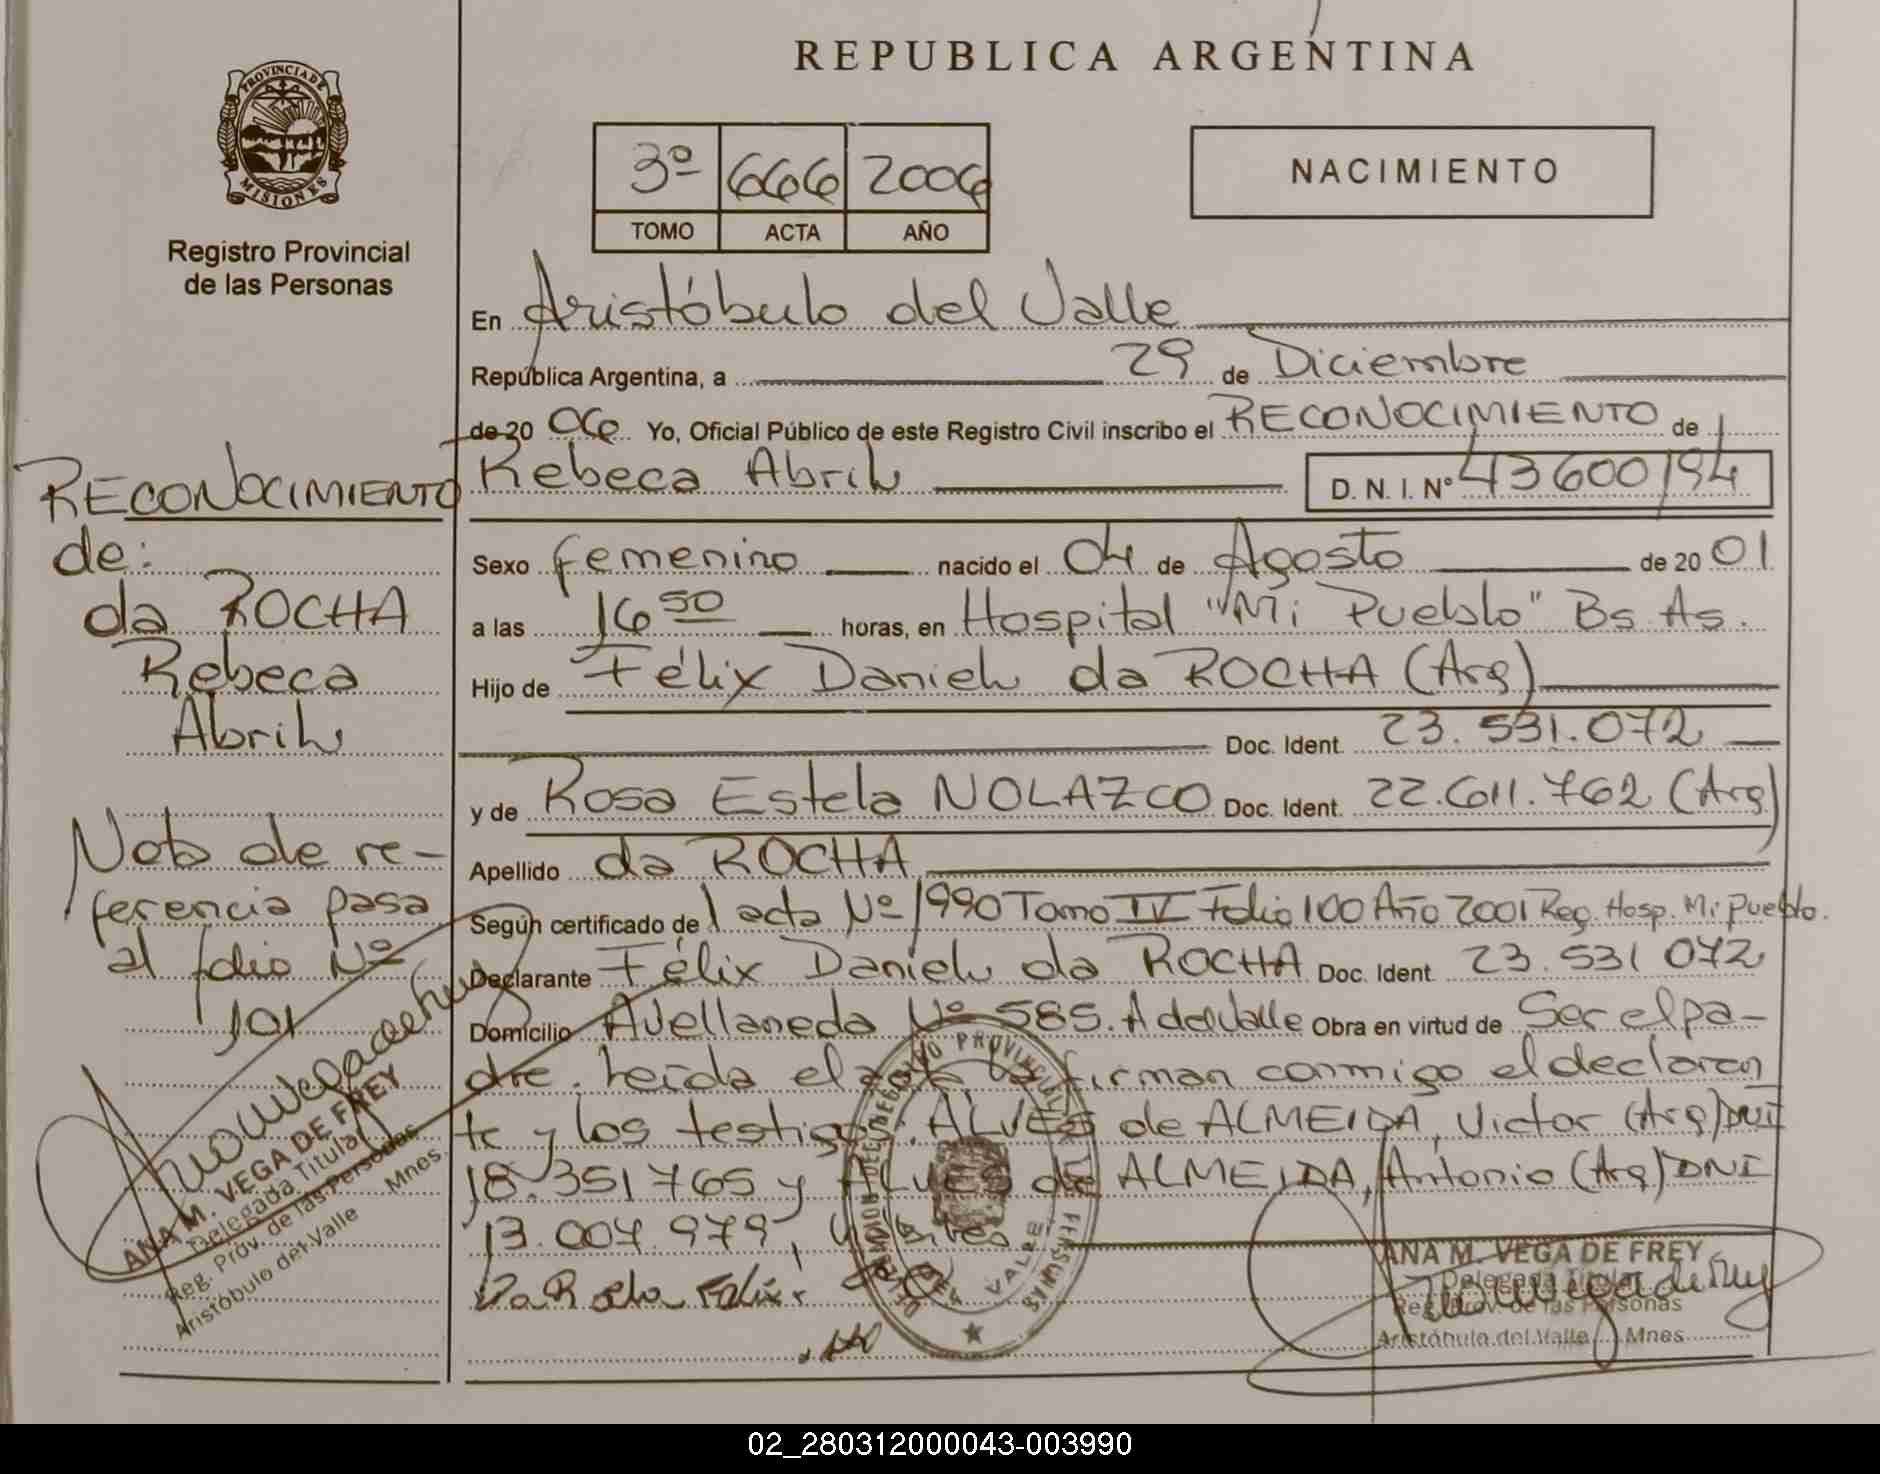 PROVINCIA DE
MISIONES
Registro Provincial
de las Personas
REPUBLICA ARGENTINA
3º 666 2006
TOMO ACTA AÑO
NACIMIENTO
En Aristóbulo del Valle
República Argentina, a 29 de Diciembre
de 20 06 Yo, Oficial Público de este Registro Civil inscribo el RECONOCIMIENTO de
Rebeca Abril D. N. I. Nº 43600194
Sexo femenino nacido el 04 de Agosto de 20 01
a las 16 50 horas, en Hospital "Mi Pueblo" Bs. As.
Hijo de Félix Daniel da ROCHA (Arg)
Doc. Ident. 23.531.072
y de Rosa Estela NOLAZCO Doc. Ident. 22.611.762 (Arg)
Apellido da ROCHA
Según certificado de acta Nº 1990 Tomo IV Folio 100 Año 2001 Reg. Hosp. Mi Pueblo.
Declarante Félix Daniel da ROCHA Doc. Ident. 23.531 072
Domicilio Avellaneda Nº 585. A del Valle Obra en virtud de Ser el pa-
dre. Leída el acta la firman conmigo el declaran
te y los testigos. ALVES de ALMEIDA, Victor (Arg) DNI
18.351765 y ALVES de ALMEIDA, Antonio (Arg) DNI
13.007.979,
Da Rocha Felix
ANA M. VEGA DE FREY
Delegada Titular
Reg. Prov. de las Personas
Aristóbulo del Valle Mnes.
RECONOCIMIENTO
de:
da ROCHA
Rebeca
Abril
Nota de re-
ferencia pasa
al folio Nº
101
ANA M. VEGA DE FREY
Delegada Titular
Reg. Prov. de las Personas
Aristóbulo del Valle Mnes.
02_280312000043-003990